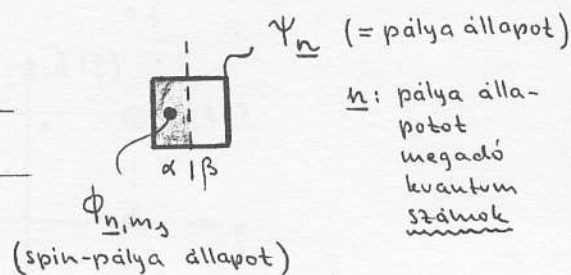 Ψn (= pálya állapot)
n: pálya álla-
potot
megadó
kvantum
számok
α | β
ϕn,ms
(spin-pálya állapot)